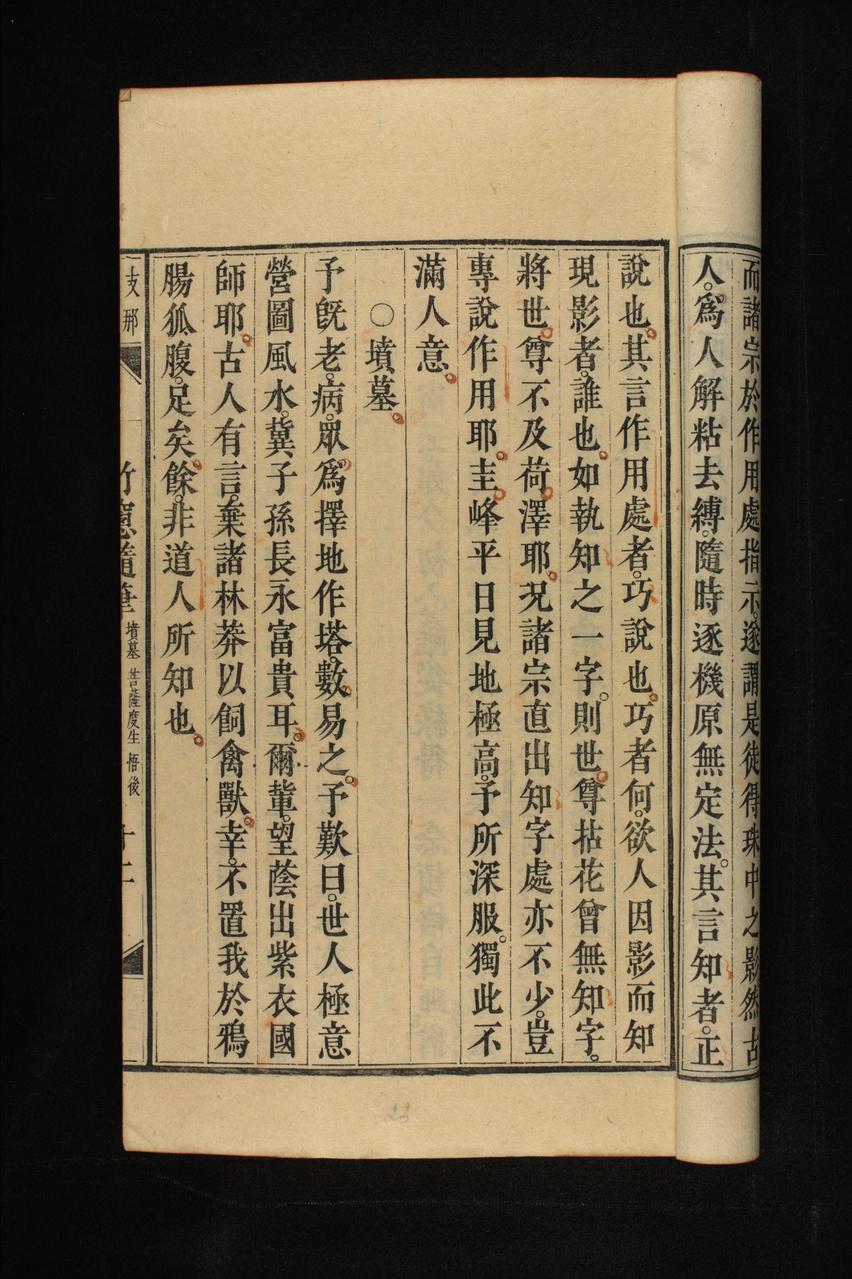 而諸宗於作用處指示遂謂是徒得珠中之影然古
人。為人解粘去縛。隨時逐機原無定法。其言知者。正
說也。其言作用處者。巧說也。巧者何。欲人因影而知
現影者。誰也。如執知之一字。則世。尊拈花曾無知字。
將世。尊不及荷。澤耶。况諸宗直出知字處亦不少。豈
專說作用耶。圭。峰平日見地極高。予所深服。獨此不
滿人意。
○墳墓。
予旣老。病。眾。為擇地作塔。數。易之。予歎曰。世人極意
營圖風水。冀子孫長永富貴耳。爾軰。望蔭出紫衣國
師耶。古人有言。棄諸林莽以飼禽獸。幸。不置我於鴉
腸狐腹。足矣。餘。非道人所知也。
支那
竹窻隨筆 墳墓 菩薩度生 悟後
23